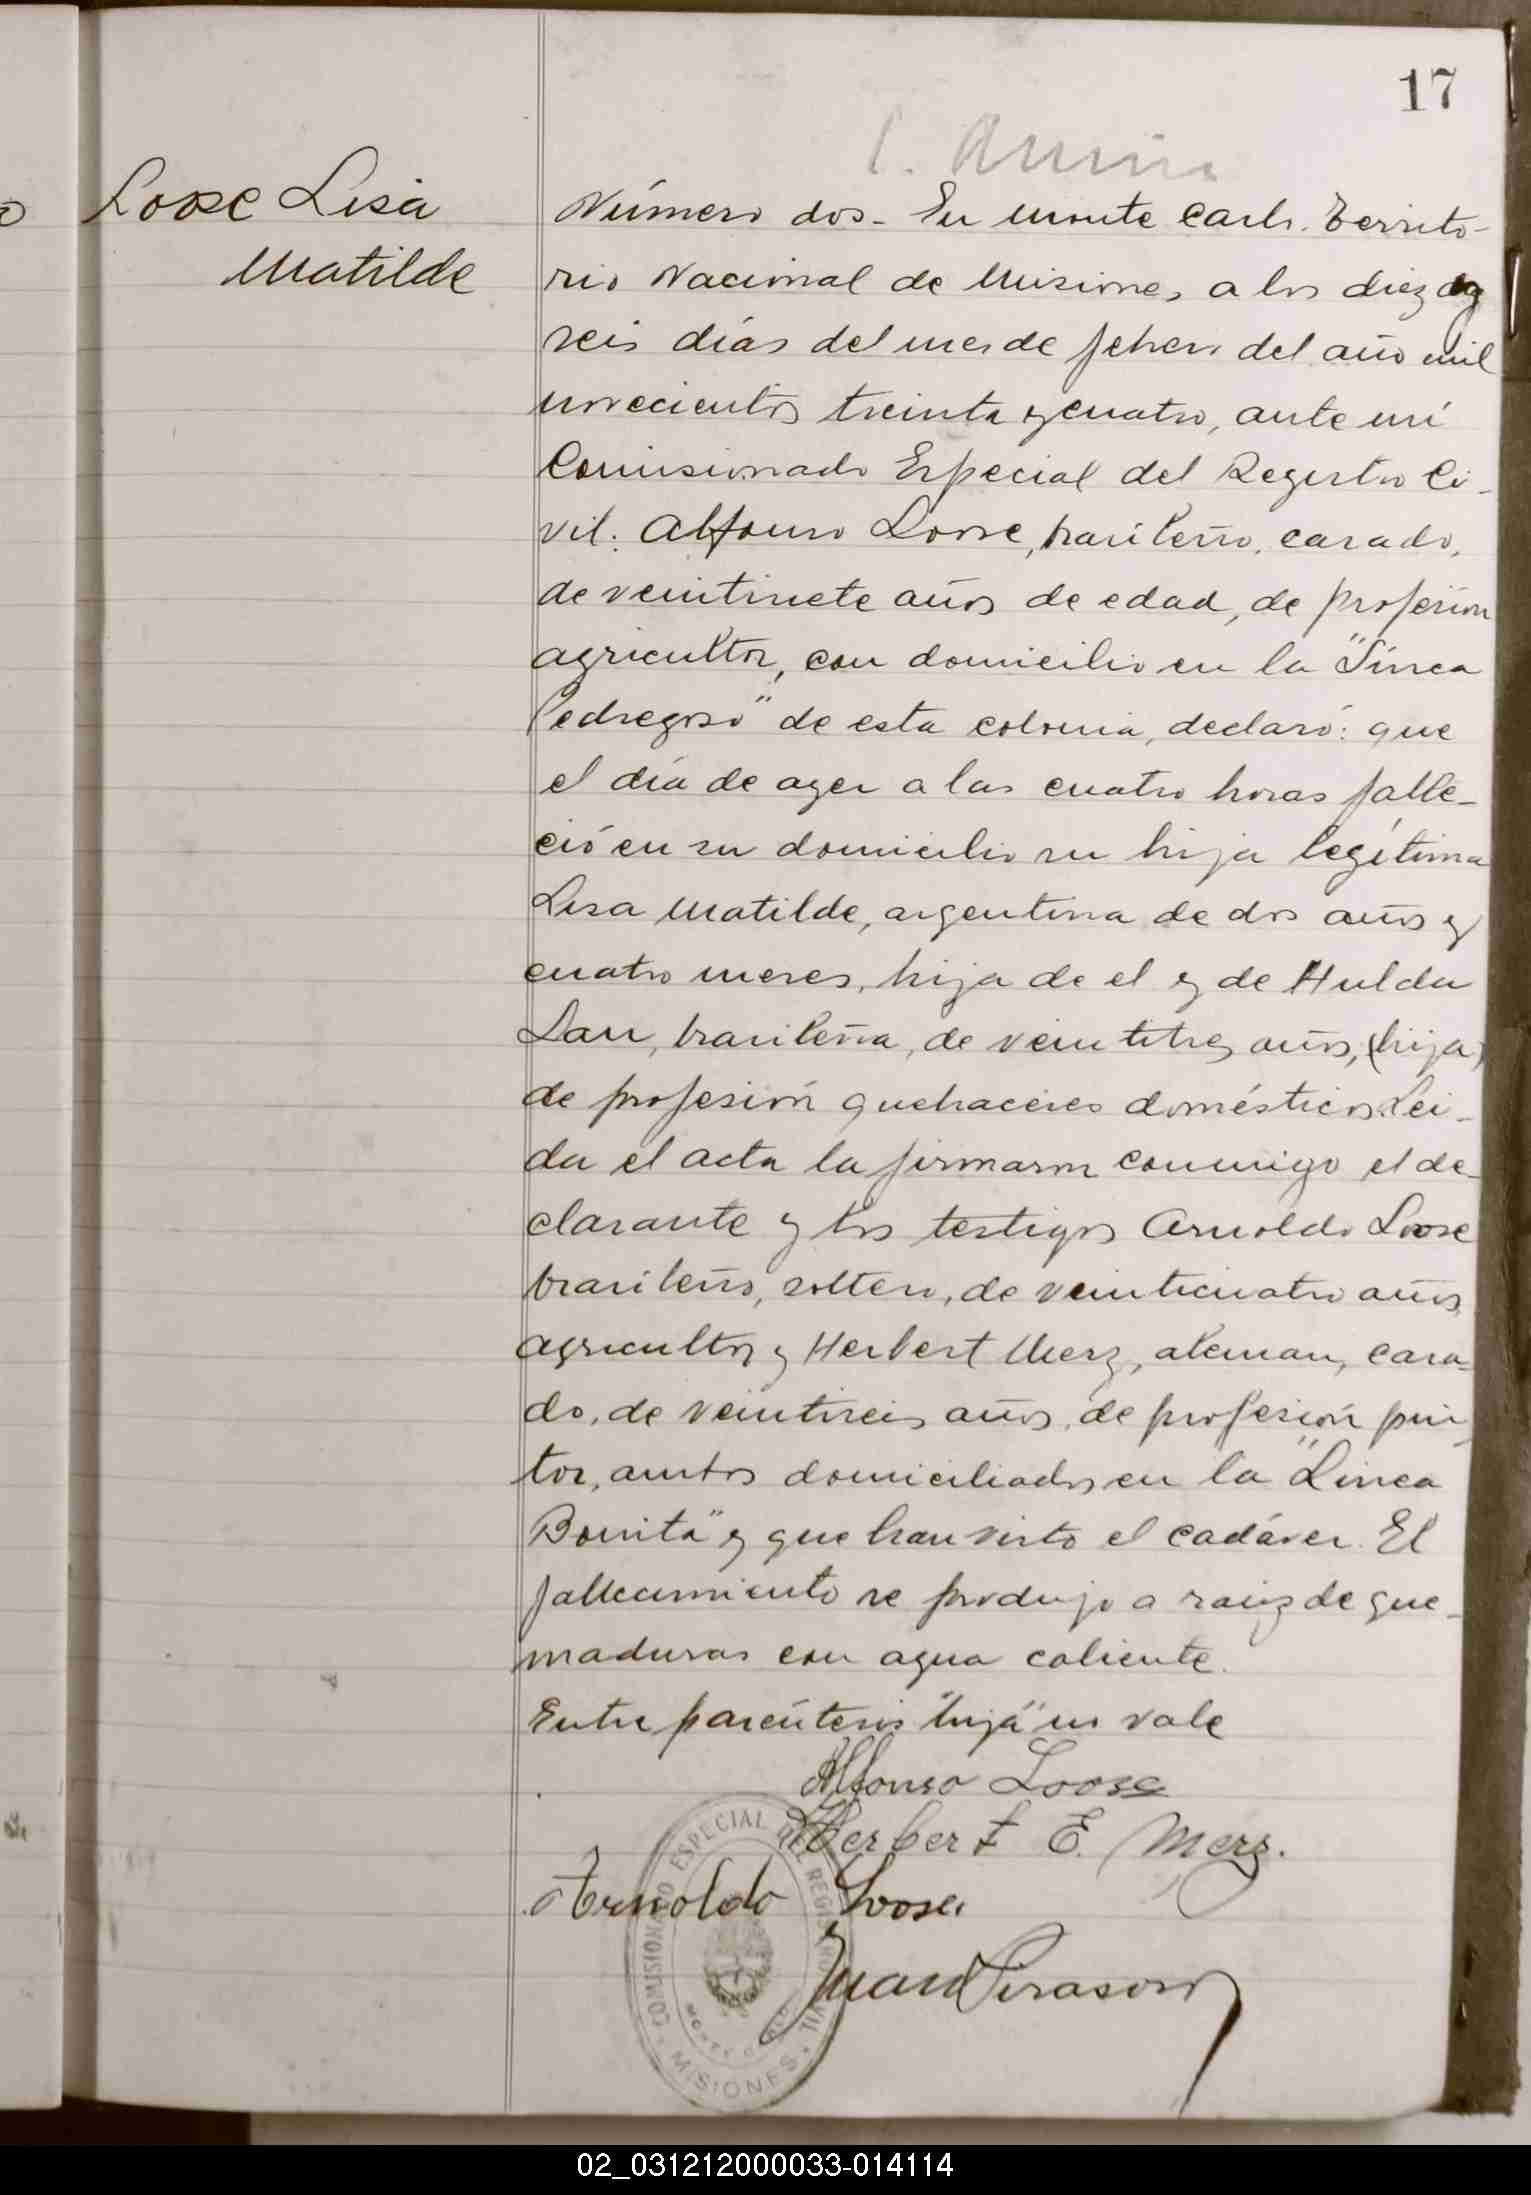 17
Loose Lisa
Matilde
Número dos- En Monte Carlo. Territo-
rio Nacional de Misiones, a los diez y
seis días del mes de febrero del año mil
novecientos treinta y cuatro, ante mí
Comisionado Especial del Registro Ci-
vil: Alfonso Loose, brasileño, casado,
de veintisiete años de edad, de profesión
agricultor, con domicilio en la "Línea
Pedregoso" de esta colonia, declaró: que
el día de ayer a las cuatro horas falle-
ció en su domicilio su hija legítima
Lisa Matilde, argentina de dos años y
cuatro meses, hija de el y de Hulda
Lau, brasileña, de veintitres años, (hija)
de profesión quehaceres domésticos. Lei-
da el acta la firmaron conmigo el de-
clarante y los testigos Arnoldo Loose
brasileño, soltero, de veinticuatro años,
agricultor y Herbert Merz, aleman, casa-
do, de veintiseis años, de profesión pin-
tor, ambos domiciliados en la "Linea
Bonita" y que han visto el cadáver. El
fallecimiento se produjo a raiz de que-
maduras con agua caliente.
Entre paréntesis "hija" no vale
Alfonso Loose
Herbert E. Merz.
Arnoldo Loose.
COMISIONADO ESPECIAL DEL REGISTRO CIVIL
MONTE CARLO
MISIONES
02_031212000033-014114